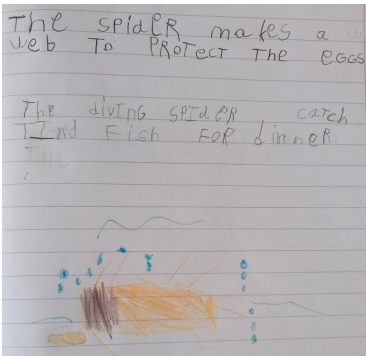 The SPidER makes a
web TO PROTECT The EGGS
The diving SPIdER catch
Fish FOR dinneR.
The